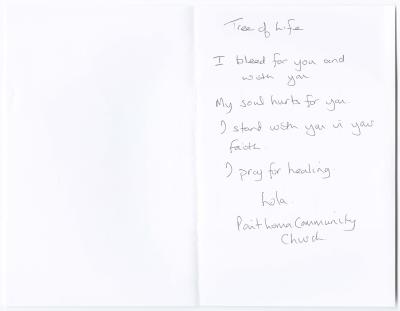 Tree of Life
I bleed for you and
with you
My soul hurts for you
I stand with you in your
faith.
I pray for healing
Lola
Community
Church